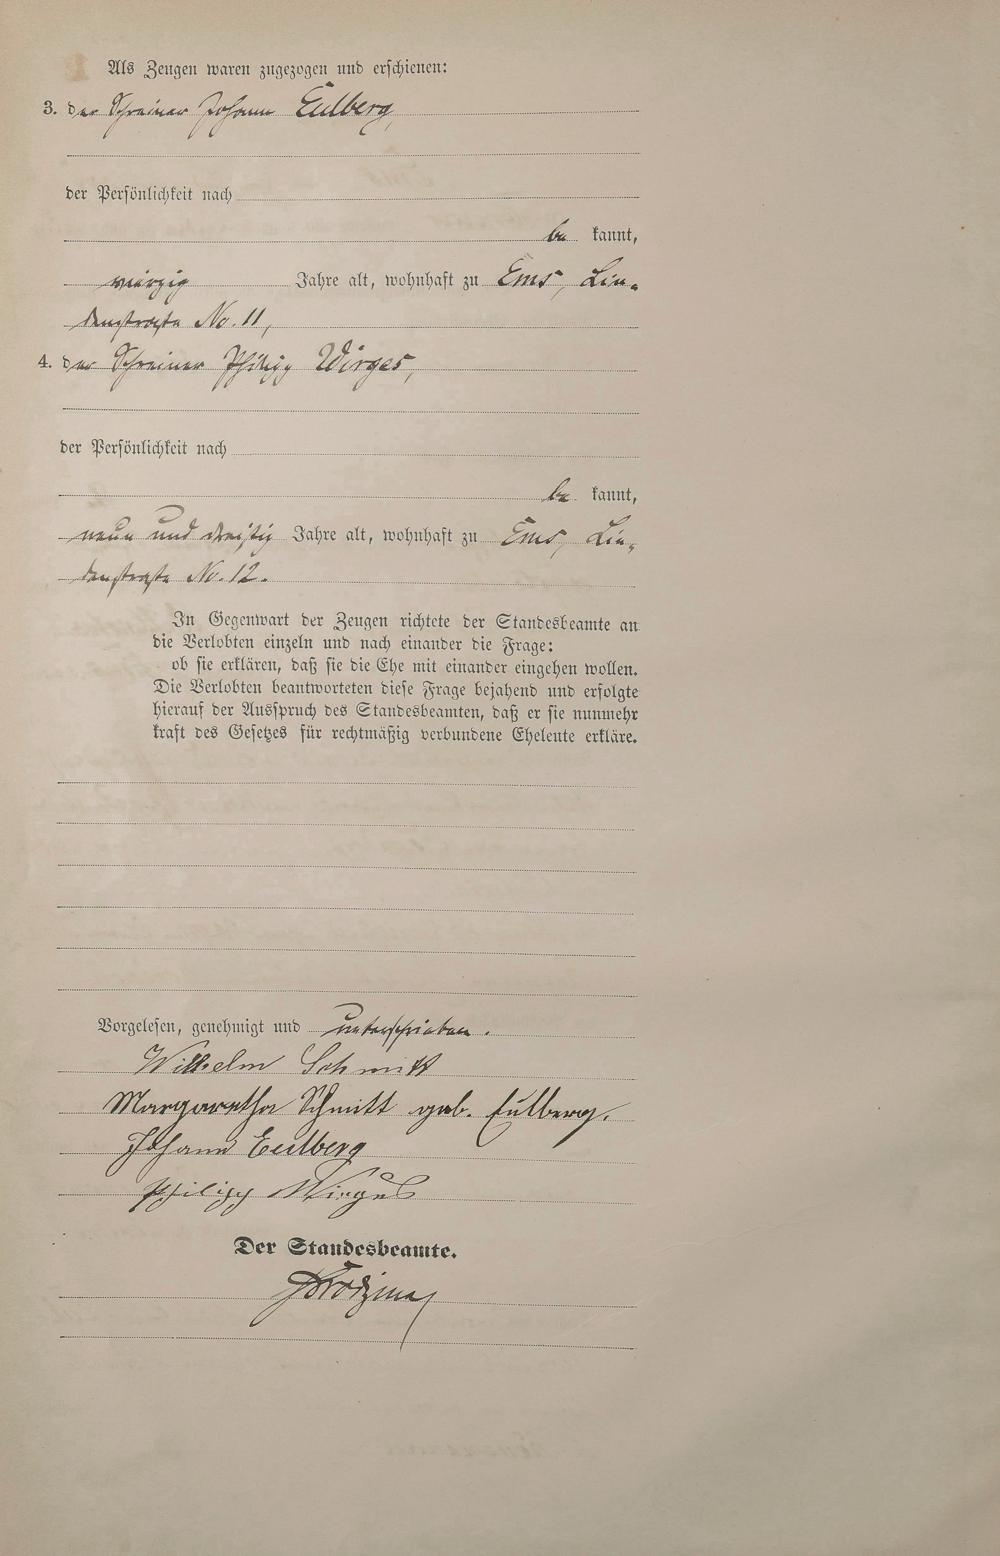 Als Zeugen waren zugezogen und erschienen:
3. der Schreiner Johann Eulberg,
der Persönlichkeit nach
be kannt,
vierzig Jahre alt, wohnhaft zu Ems, Lin-
denstraße No. 11,
4. der Schreiner Philipp Wirges,
der Persönlichkeit nach
be kannt,
neun und dreißig Jahre alt, wohnhaft zu Ems, Lin-
denstraße No. 12.
In Gegenwart der Zeugen richtete der Standesbeamte an
die Verlobten einzeln und nach einander die Frage:
ob sie erklären, daß sie die Ehe mit einander eingehen wollen.
Die Verlobten beantworteten diese Frage bejahend und erfolgte
hierauf der Ausspruch des Standesbeamten, daß er sie nunmehr
kraft des Gesetzes für rechtmäßig verbundene Eheleute erkläre.
Vorgelesen, genehmigt und unterschrieben.
Wilhelm Schmitt
Margaretha Schmitt geb. Eulberg.
Johann Eulberg
Philipp Wirges
Der Standesbeamte.